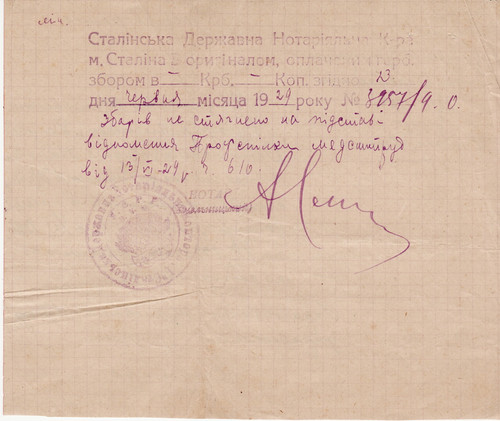 Сталінська Державна Нотаріяльна К-ра
м. Сталіна З оригіналом, оплачений герб.
збором в — Крб. — Коп. згідно 23
дня червня місяця 1929 року № 3257/9. О.
Зборів не стягнено на підставі
відношення Профспілки медсантруд
від 15/VI-29 р. ч 610.
НОТАР